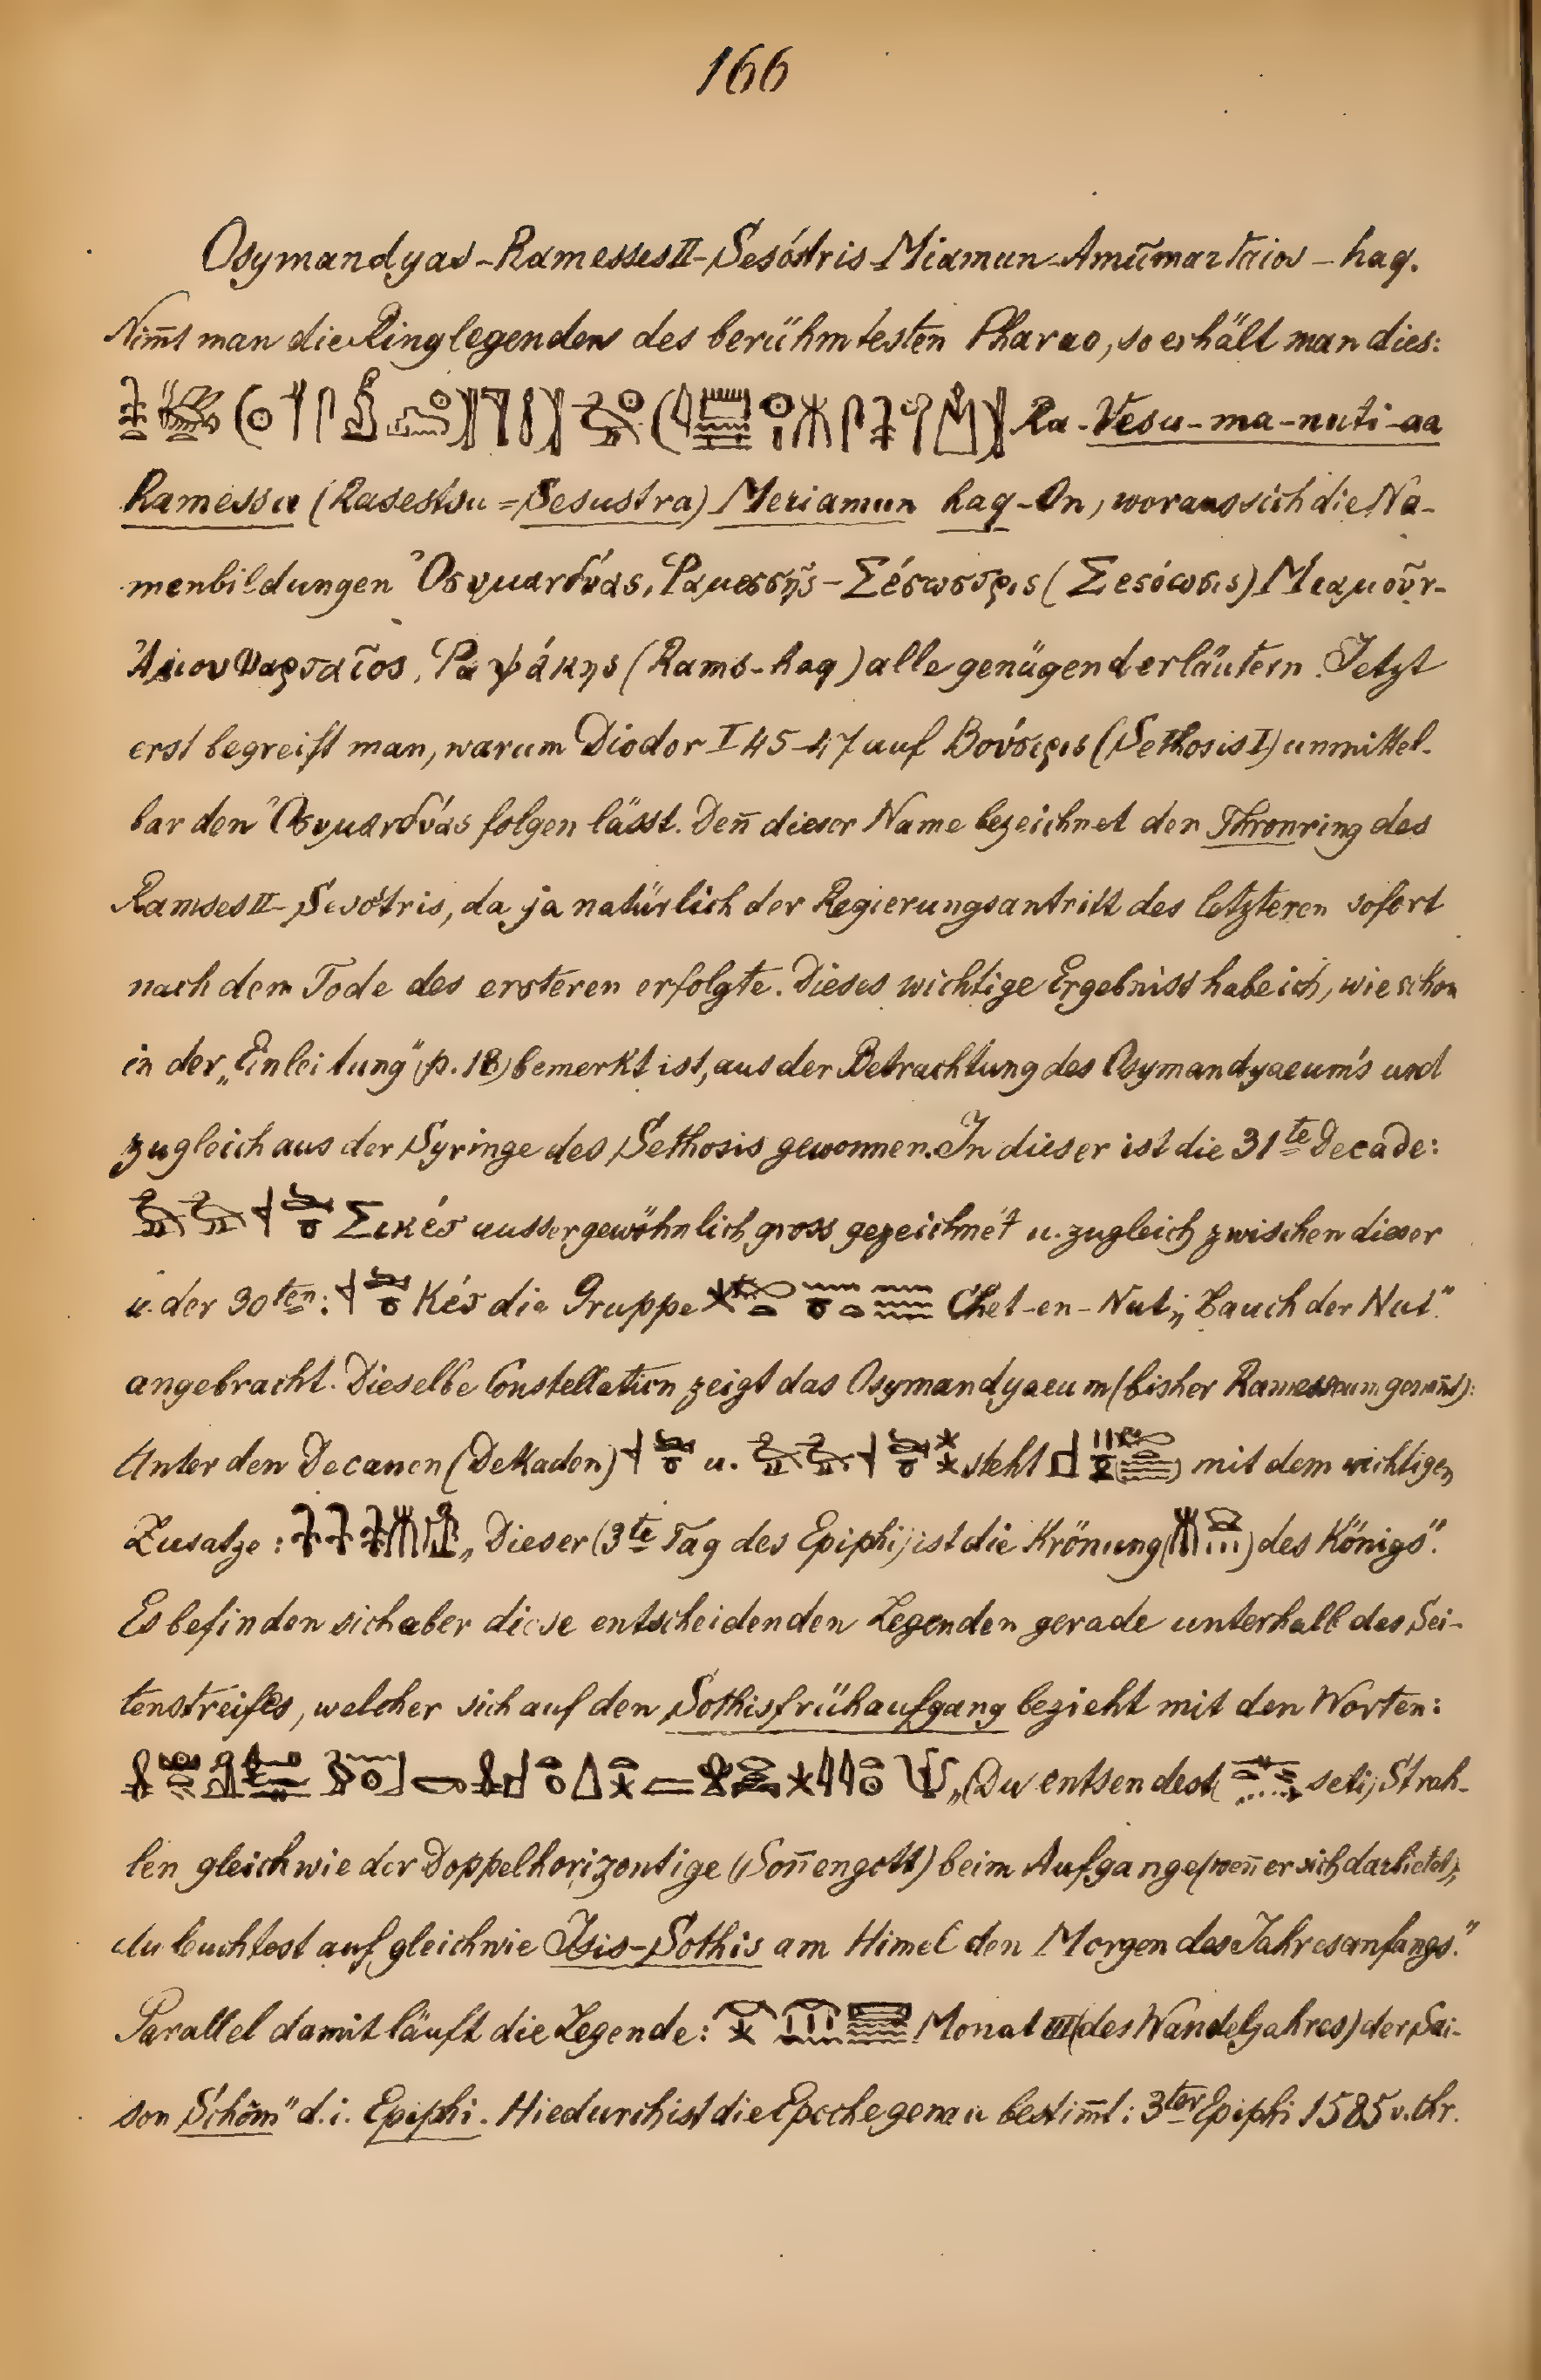 166
Osymandyas-Ramesses II-Sesóstris-Miamun-Amūmartaios-haq.
Nim̅t man die Ringlegenden des berühmtesten Pharao, so erhält man dies:
Ra-Vesu-ma-nuti-aa
Ramessu (Rasestsu = Sesustra) Meriamun haq-On, woraus sich die Na-
menbildungen Ὀσυμανδύας, Ῥαμεσσῆς-Σέσωστρις (Σεσόωσις) Μιαμοῦν-
Ἀμουμαρταῖος, Ῥαψάκης (Rams-haq) alle genügend erläutern. Jetzt
erst begreift man, warum Diodor I 45-47 auf Βούσιρις (Sethosis I) unmittel-
bar den Ὀσυμανδύας folgen lässt. Den̅ dieser Name bezeichnet den Thronring des
Ramses II-Sesóstris, da ja natürlich der Regierungsantritt des letzteren sofort
nach dem Tode des ersteren erfolgte. Dieses wichtige Ergebniss habe ich, wie schon
in der „Einleitung" (p. 18) bemerkt ist, aus der Betrachtung des Osymandyaeum's und
zugleich aus der Syringe des Sethosis gewonnen. In dieser ist die 31te Decade:
Σικέσ aussergewöhnlich gross gezeichnet u. zugleich zwischen dieser
u. der 30ten: Kέσ die Gruppe Chet-en-Nut „Bauch der Nut"
angebracht. Dieselbe Constellation zeigt das Osymandyaeum (bisher Ramesseum genan̅t):
Unter den Decanen (Dekaden) u. steht mit dem wichtigen
Zusatze: „Dieser (3te Tag des Epiphi) ist die Krönung ( ) des Königs".
Es befinden sich aber diese entscheidenden Legenden gerade unterhalb des Sei-
tenstreifes, welcher sich auf den Sothisfrühaufgang bezieht mit den Worten:
„Du entsendest ( seti) Strah-
len gleichwie der Doppelhorizontige (Son̅engott) beim Aufgange (wen̅ er sich darbietet),
du leuchtest auf gleichwie Isis-Sothis am Himel den Morgen des Jahresanfangs."
Parallel damit läuft die Legende: Monat III (des Wandeljahres) der Sai-
son Schŏm" d.i. Epiphi. Hiedurch ist die Epoche genau bestim̅t: 3ter Epiphi 1585 v. Chr.